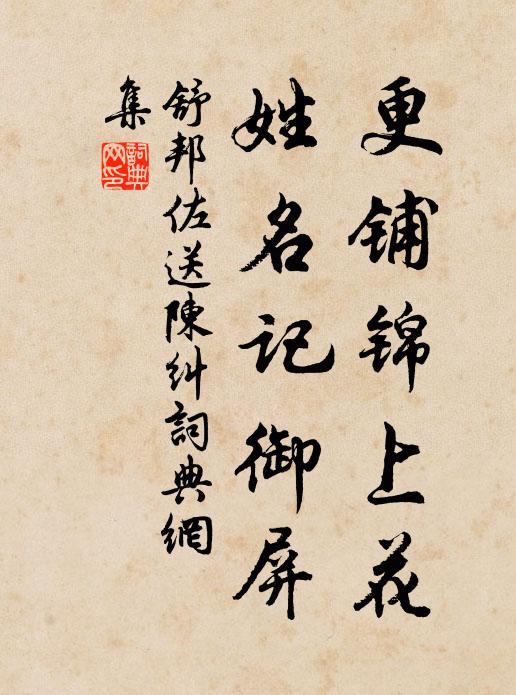 更铺锦上花
姓名记御屏
舒邦佐送陳纠詞典網
集
詞典
网印